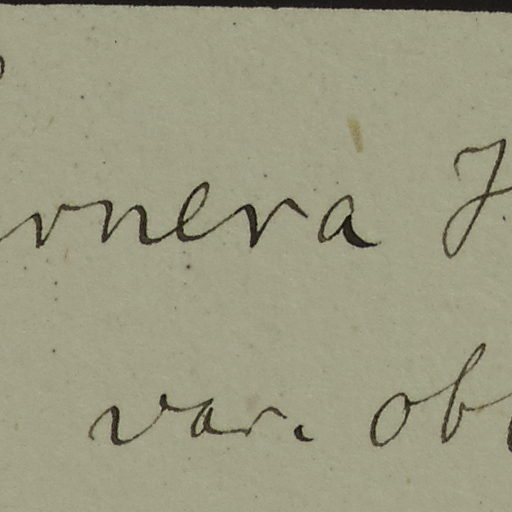 rnera
var. ob